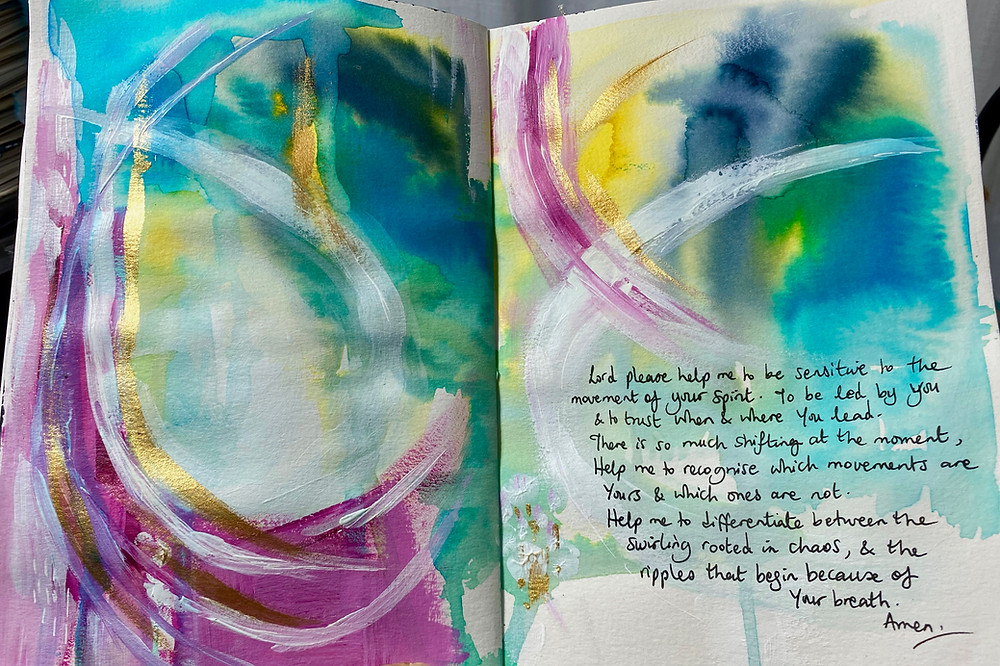 Lord please help me to be sensitive to the
movement of your spirit. To be led by You
& to trust when & where You lead.
There is so much shifting at the moment,
Help me to recognise which movements are
Yours & which ones are not.
Help me to differentiate between the
swirling rooted in chaos, & the
ripples that begin because of
Your breath.
Amen.